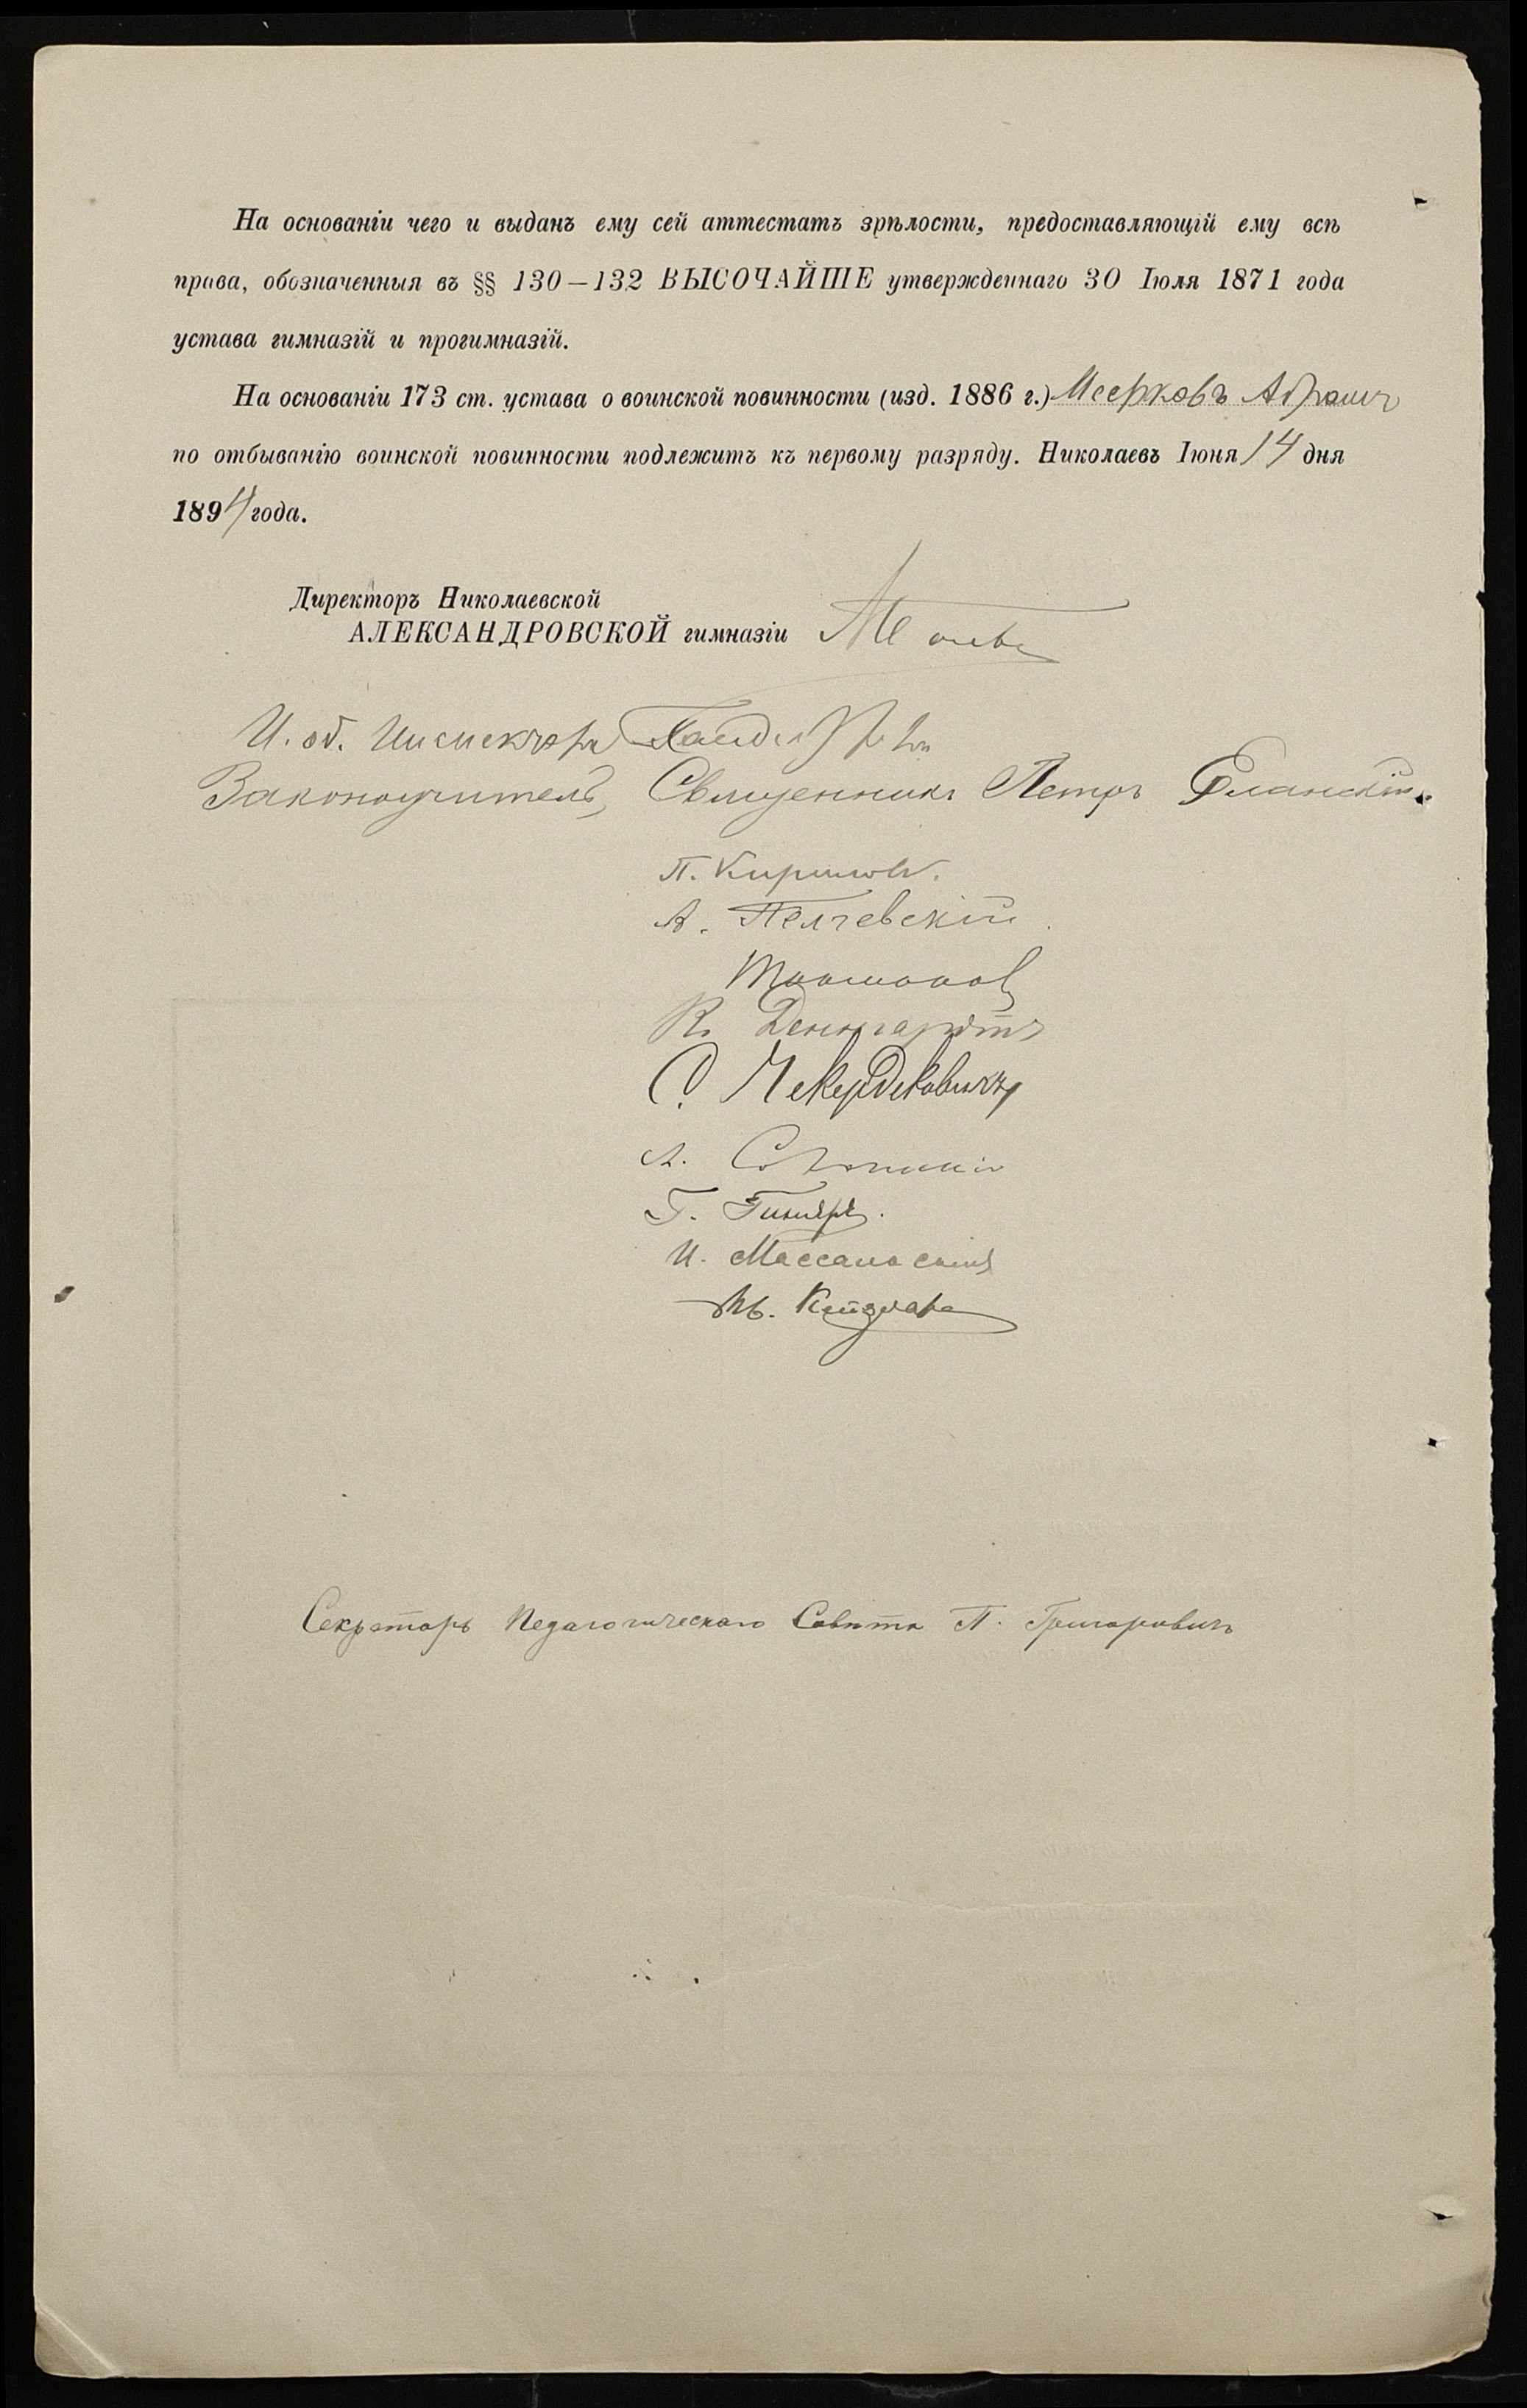 На основаніи чего и выданъ ему сей аттестатъ зрѣлости, предоставляющій ему всѣ
права, обозначенныя въ §§ 130—132 ВЫСОЧАЙШЕ утвержденнаго 30 Іюля 1871 года
устава гимназій и прогимназій.
На основаніи 173 ст. устава о воинской повинности (изд. 1886 г.) Мееръковъ Абрамъ
по отбыванію воинской повинности подлежитъ къ первому разряду. Николаевъ Іюня 14 дня
1894 года.
Директоръ Николаевской
АЛЕКСАНДРОВСКОЙ гимназіи
И. об. Инспектора
Законоучитель, Священникъ Петръ Еланскій.
П. Кирилловъ.
А. Пелчевскій
К. Денгардтъ
С. Чекердековичъ
Г.
И.
Секретарь Педагогическаго Совѣта П. Григоровичъ